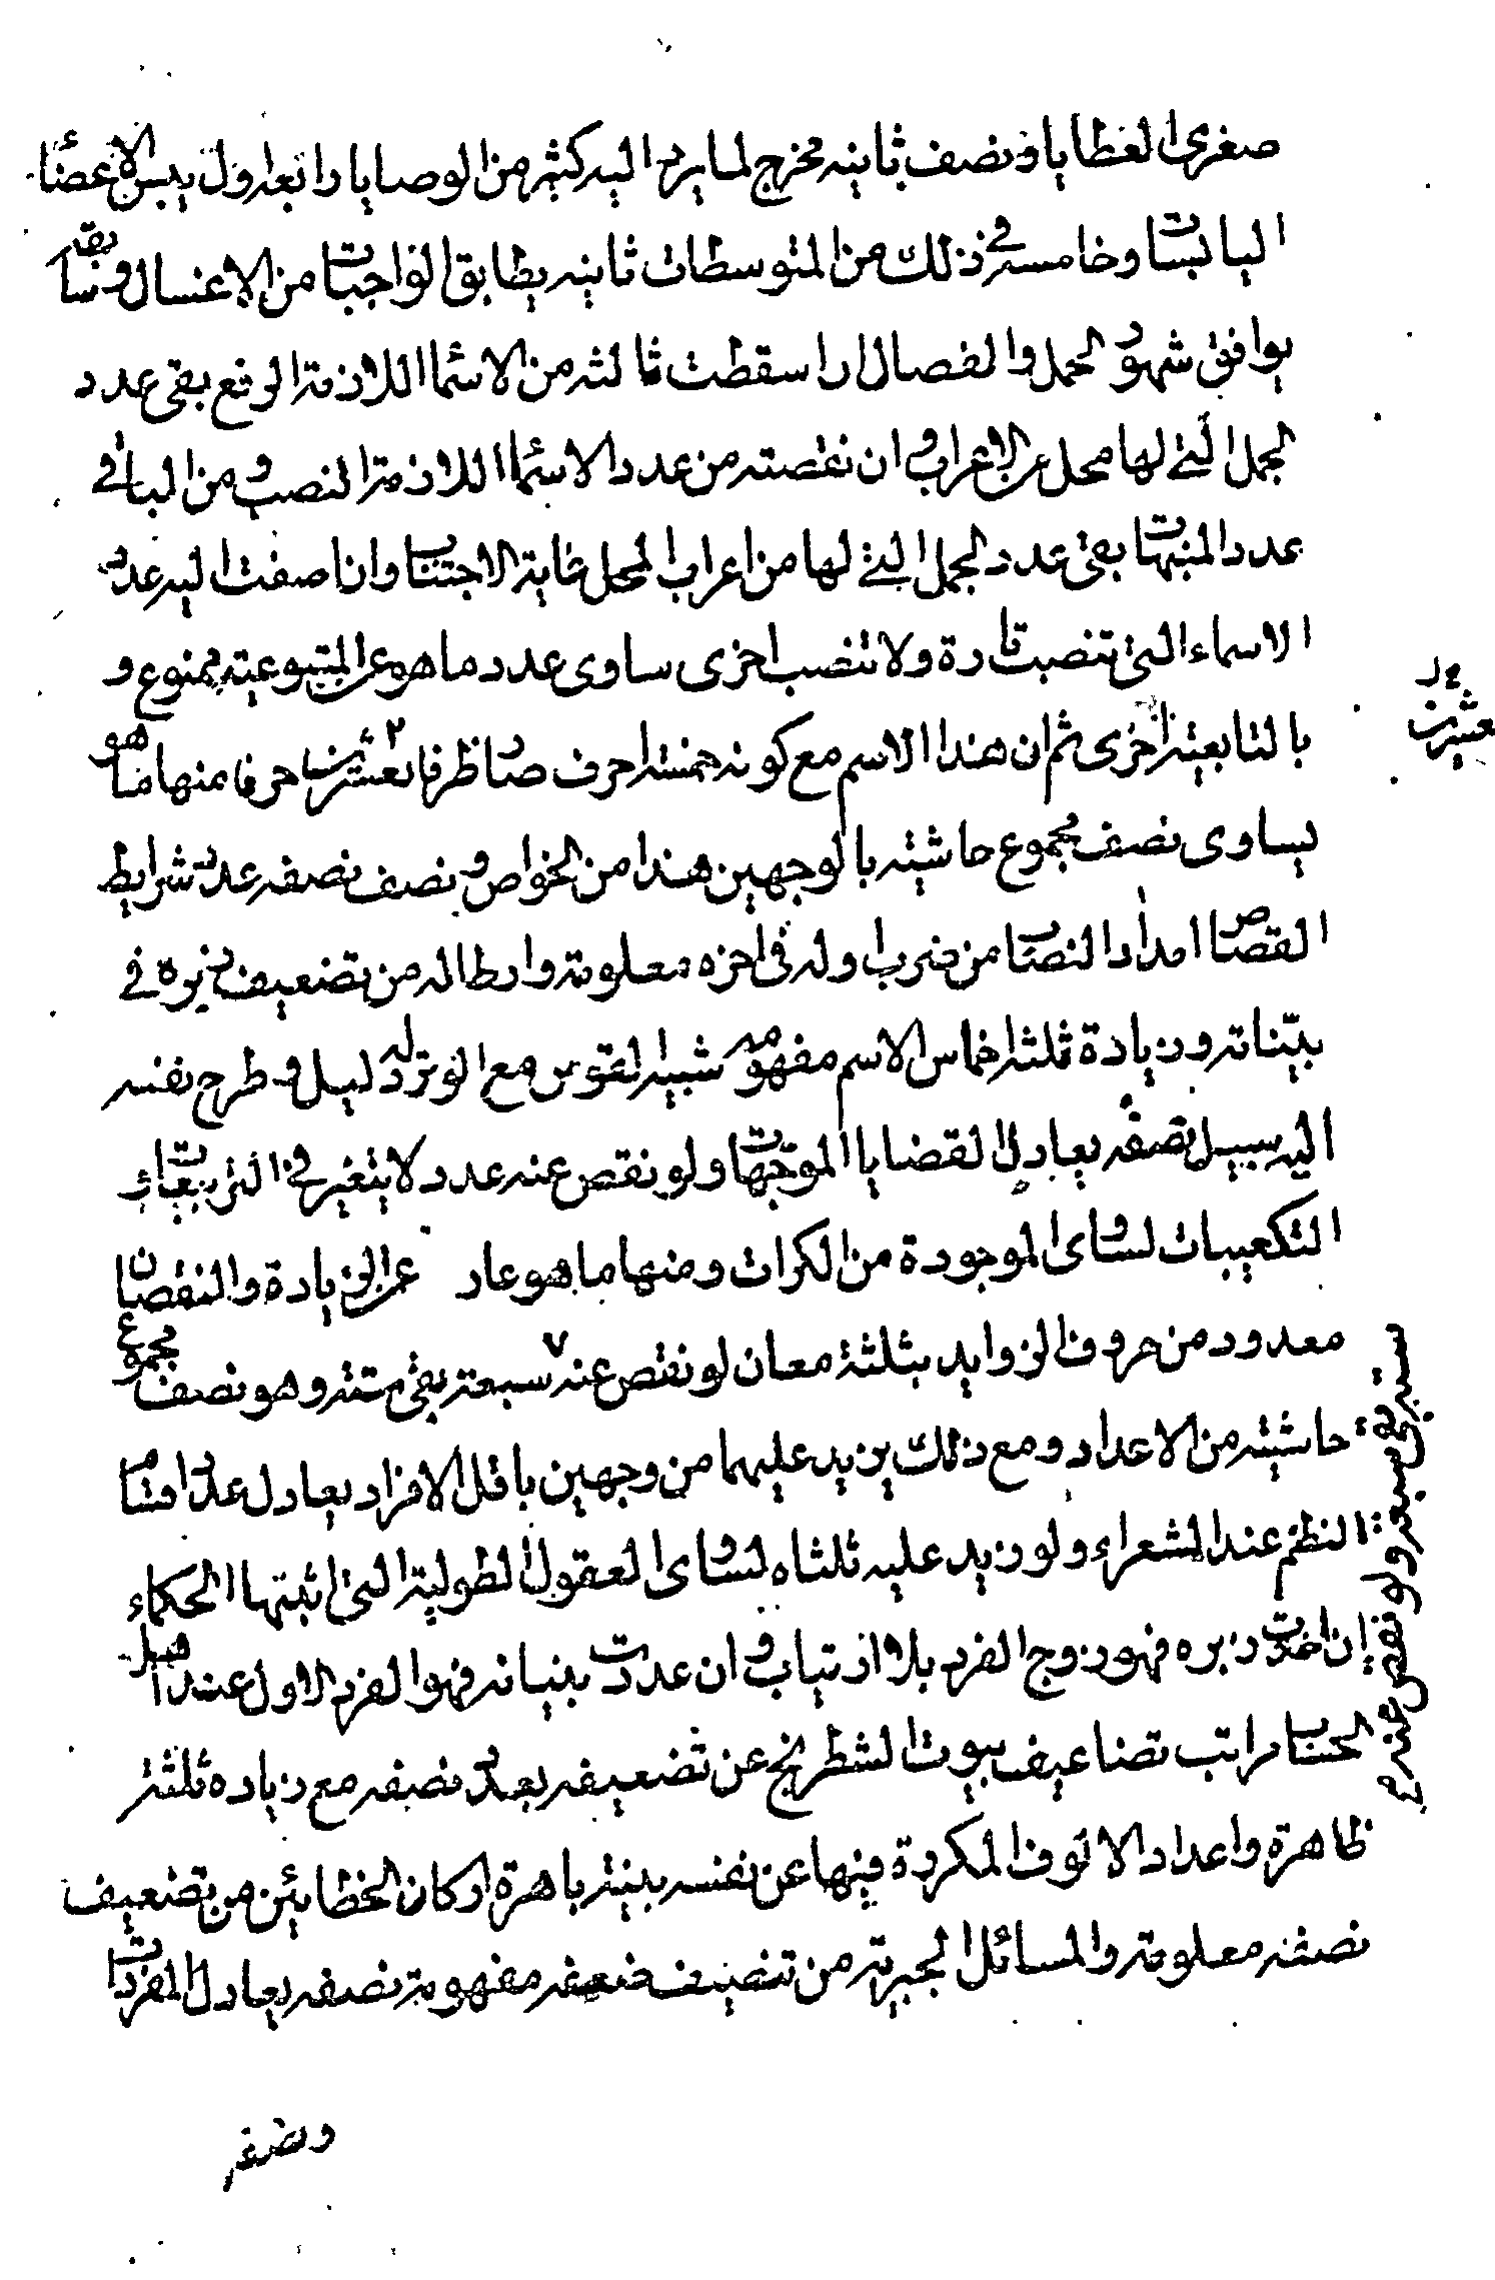 صغرى العطايا ونصف ثانيه مخرج لما يرد اليه كثير من الوصايا رابعه اول يبس الاعضاء
اليابسات وخامسه في ذلك من المتوسطات ثانيه يطابق الواجبات من الاغسال وسابقه
يوافق شهور الحمل والفصال اذا سقطت ثالثه من الاسماء اللازمة الرفع بقى عدد
الجمل التي لها محل من الاعراب وان نقصته من عدد الاسماء اللازمة النصب ومن الباقي
عدد المنبهات بقى عدد الجمل التي لها من اعراب المحل غاية الاجتناب وان اضفت اليه عدد
الاسماء التي تنصب تارة ولا تنصب اخرى ساوى عدد ما هو عن المتبوعية ممنوع و
بالتابعية اخرى ثم ان هذا الاسم مع كونه خمسة احرف صار ظرفا لعشرين حرفا منها ما هو
يساوى نصف مجموع حاشيته بالوجهين هذا من الخواص ونصف نصفه عدد شرايط
القصاص امداد النصاب من ضرب اوله في اخره معلومة وارطاله من تضعيف زبره في
بيناته وزيادة ثلثة اخماس الاسم مفهومه شبيه القوس مع الوتر له دليل وطرح نفسه
اليه سبيل نصفه يعادل القضايا الموجهات ولو نقص عنه عدد لا يتغير في التربيعات
التكعيبات لساوى الموجودة من الكرات ومنها ما هو عار عن الزيادة والنقصان
معدود من حروف الزوايد بثلثة معان لو نقص عنه سبعة بقى ستة وهو نصف مجموع
حاشيته من الاعداد ومع ذلك يزيد عليهما من وجهين باقل الافراد يعادل عدد اقسام
النظم عند الشعراء ولو زيد عليه ثلثاه لساوى العقول الطولية التي اثبتها الحكماء
إن اخذت زبره فهو زوج الفرد بلا ارتياب وان عددت بينياته فهو الفرد الاول عند اهل
الحساب مراتب تضاعيف بيوت الشطرنج عن تضعيفه بعد نصفه مع زيادة ثلثة
ظاهرة واعداد الالوف المكررة فيها عن نفسه بينة باهرة اركان الخطايئن من تضعيف
نصفه معلومة والمسائل الجبرية من تنصيف ضعفه مفهومة نصفه يعادل المفردات
ونصفه
لعشرين
ستة بقى سبعة ولو نقص عنه